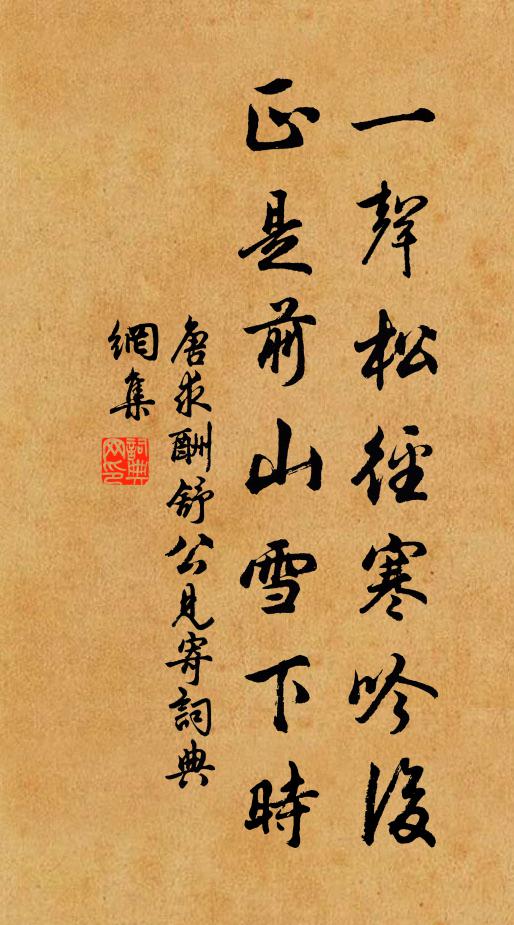 一聲松徑寒吟後
正是前山雪下時
唐求酬舒公見寄詞典
網集
詞典
网印